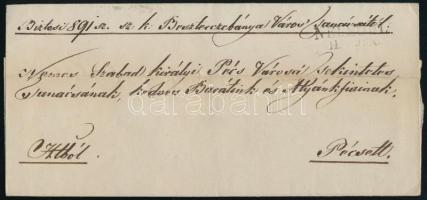 891 sz. sz. k. Beszterczebánya Város Tanácsától.
NEUSOHL
Nemes Szabad királyi Pécs Városa tekintetes
Tanácsának, kedves Barátink és Atyánkfiainak.
Pécsett.